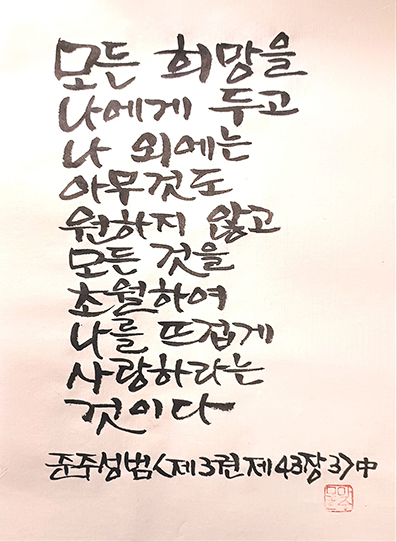 모든 희망을
나에게 두고
나 외에는
아무것도
원하지 않고
모든 것을
초월하여
나를 뜨겁게
사랑하라는
것이다
준주성범<제3권 제43장 3>中